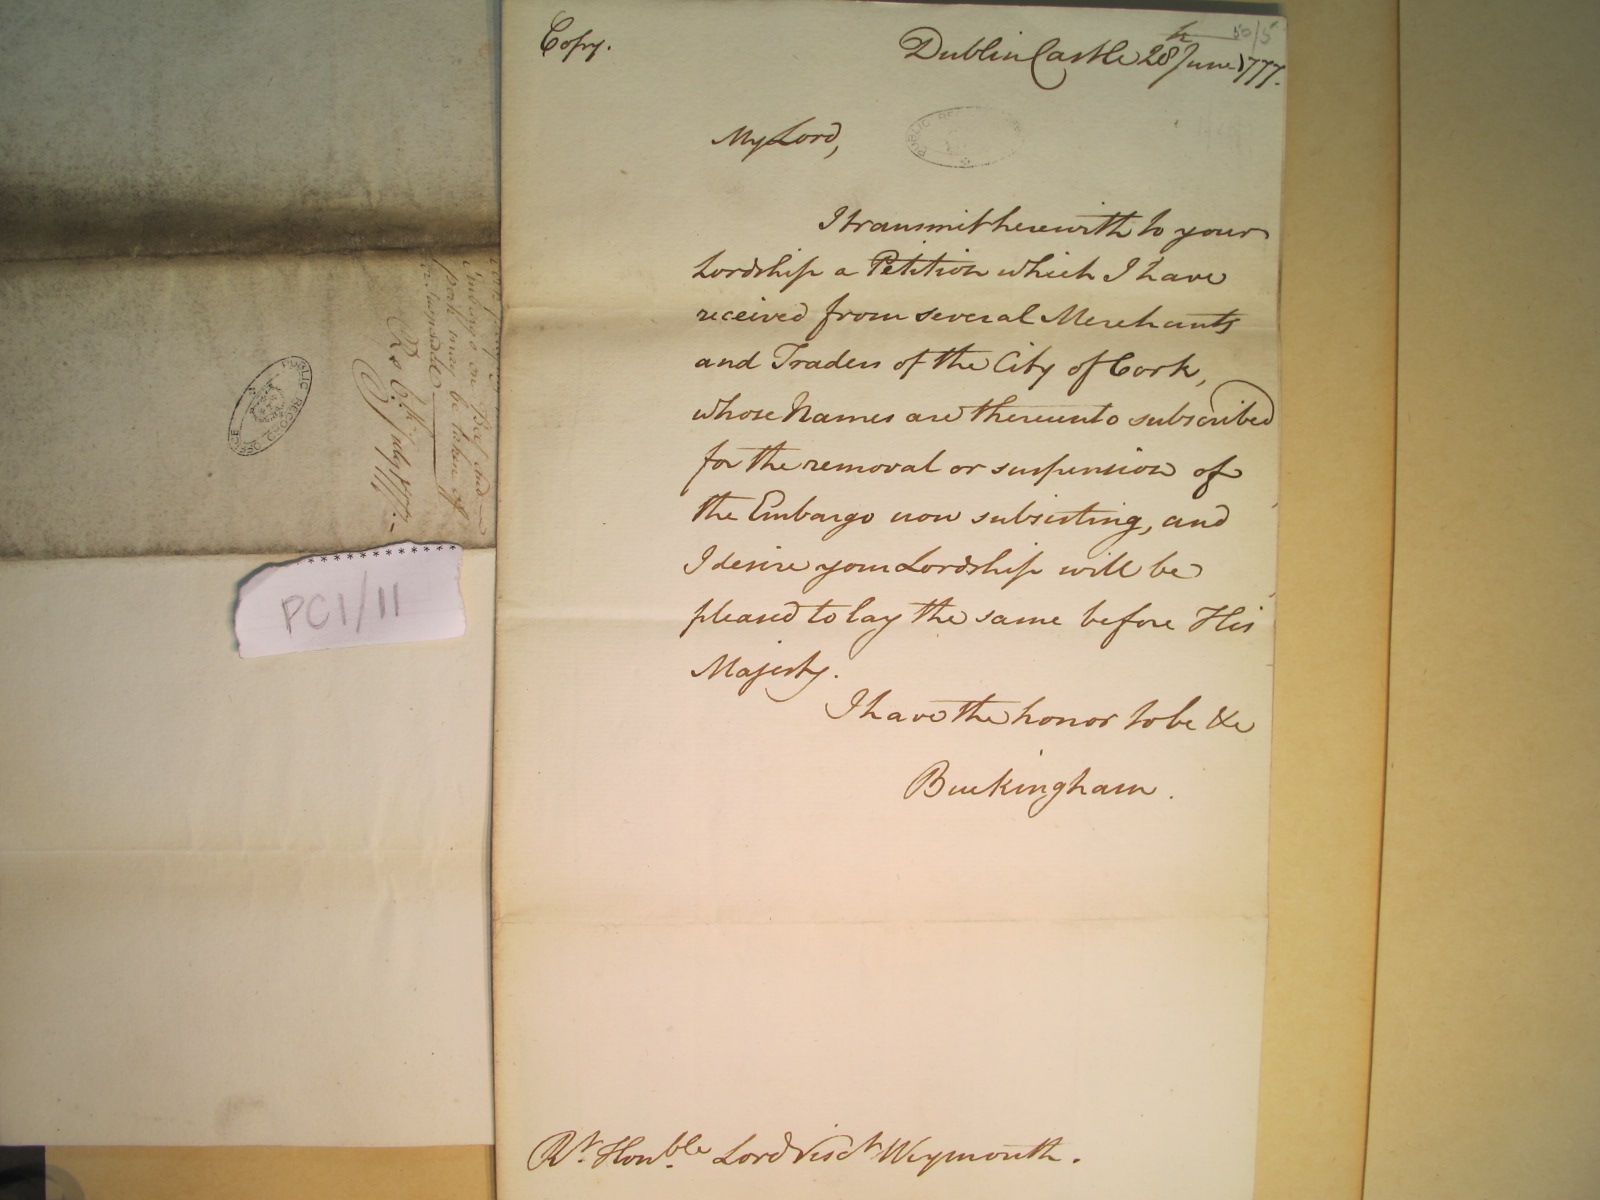 Copy.
50/5
Dublin Castle 28th June 1777.
My Lord,
I transmit herewith to your
Lordship a Petition which I have
received from several Merchants
and Traders of the City of Cork,
whose Names are thereunto subscribed
for the removal or suspension of
the Embargo now subsisting, and
I desire your Lordship will be
pleased to lay the same before His
Majesty.
I have the honor to be &c
Buckingham.
Rt. Honble. Lord Visct. Weymouth.
Embargo on Beef and
Pork may be taken off
Rd. 6th July 1777.
PUBLIC RECORD OFFICE
PC1/11